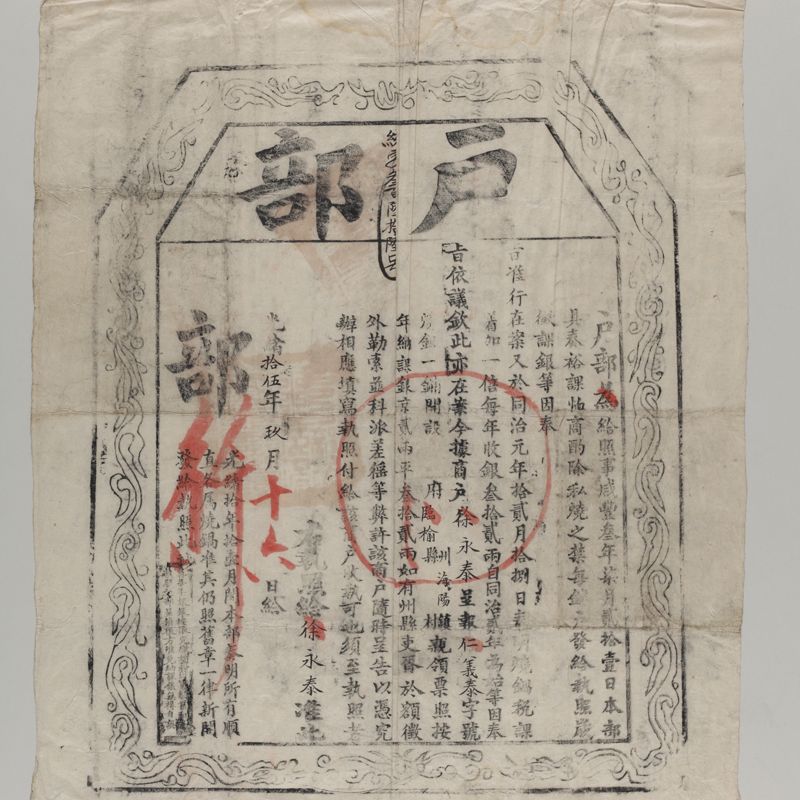 戶部
戶部為給照事咸豐叁年柒月貳拾壹日本部
具奏裕課恤商酌除私燒之禁每鍋發給執照歲
徵課銀等因奉
旨准行在案又於同治元年拾貳月拾捌日奏明燒鍋稅課
着加一倍每年收銀叁拾貳兩自同治貳年為始等因奉
旨依議欽此亦在案今據商戶徐永泰呈報仁義泰字號
燒鍋一鋪開設 府臨榆縣 州海陽鎮 村親領票照按
年納課銀京貳兩平叁拾貳兩如有州縣吏胥於額徵
外勒索並科派差徭等弊許該商戶隨時呈告以憑究
辦相應填寫執照付給該商戶收執可也須至執照者
右執照給徐永泰准此
光緒拾伍年玖月十六日給
部
光緒拾年拾壹月間本部奏明所有順
直各屬燒鍋准其仍照舊章一律新開
發給執照此